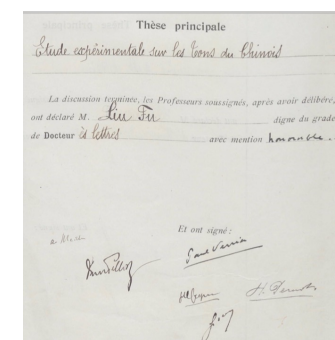 Thèse principale
Étude expérimentale sur les tons du Chinois
La discussion terminée, les Professeurs soussignés, après avoir délibéré,
ont déclaré M. Liu Fu digne du grade
de Docteur ès lettres avec mention honorable.
Et ont signé :